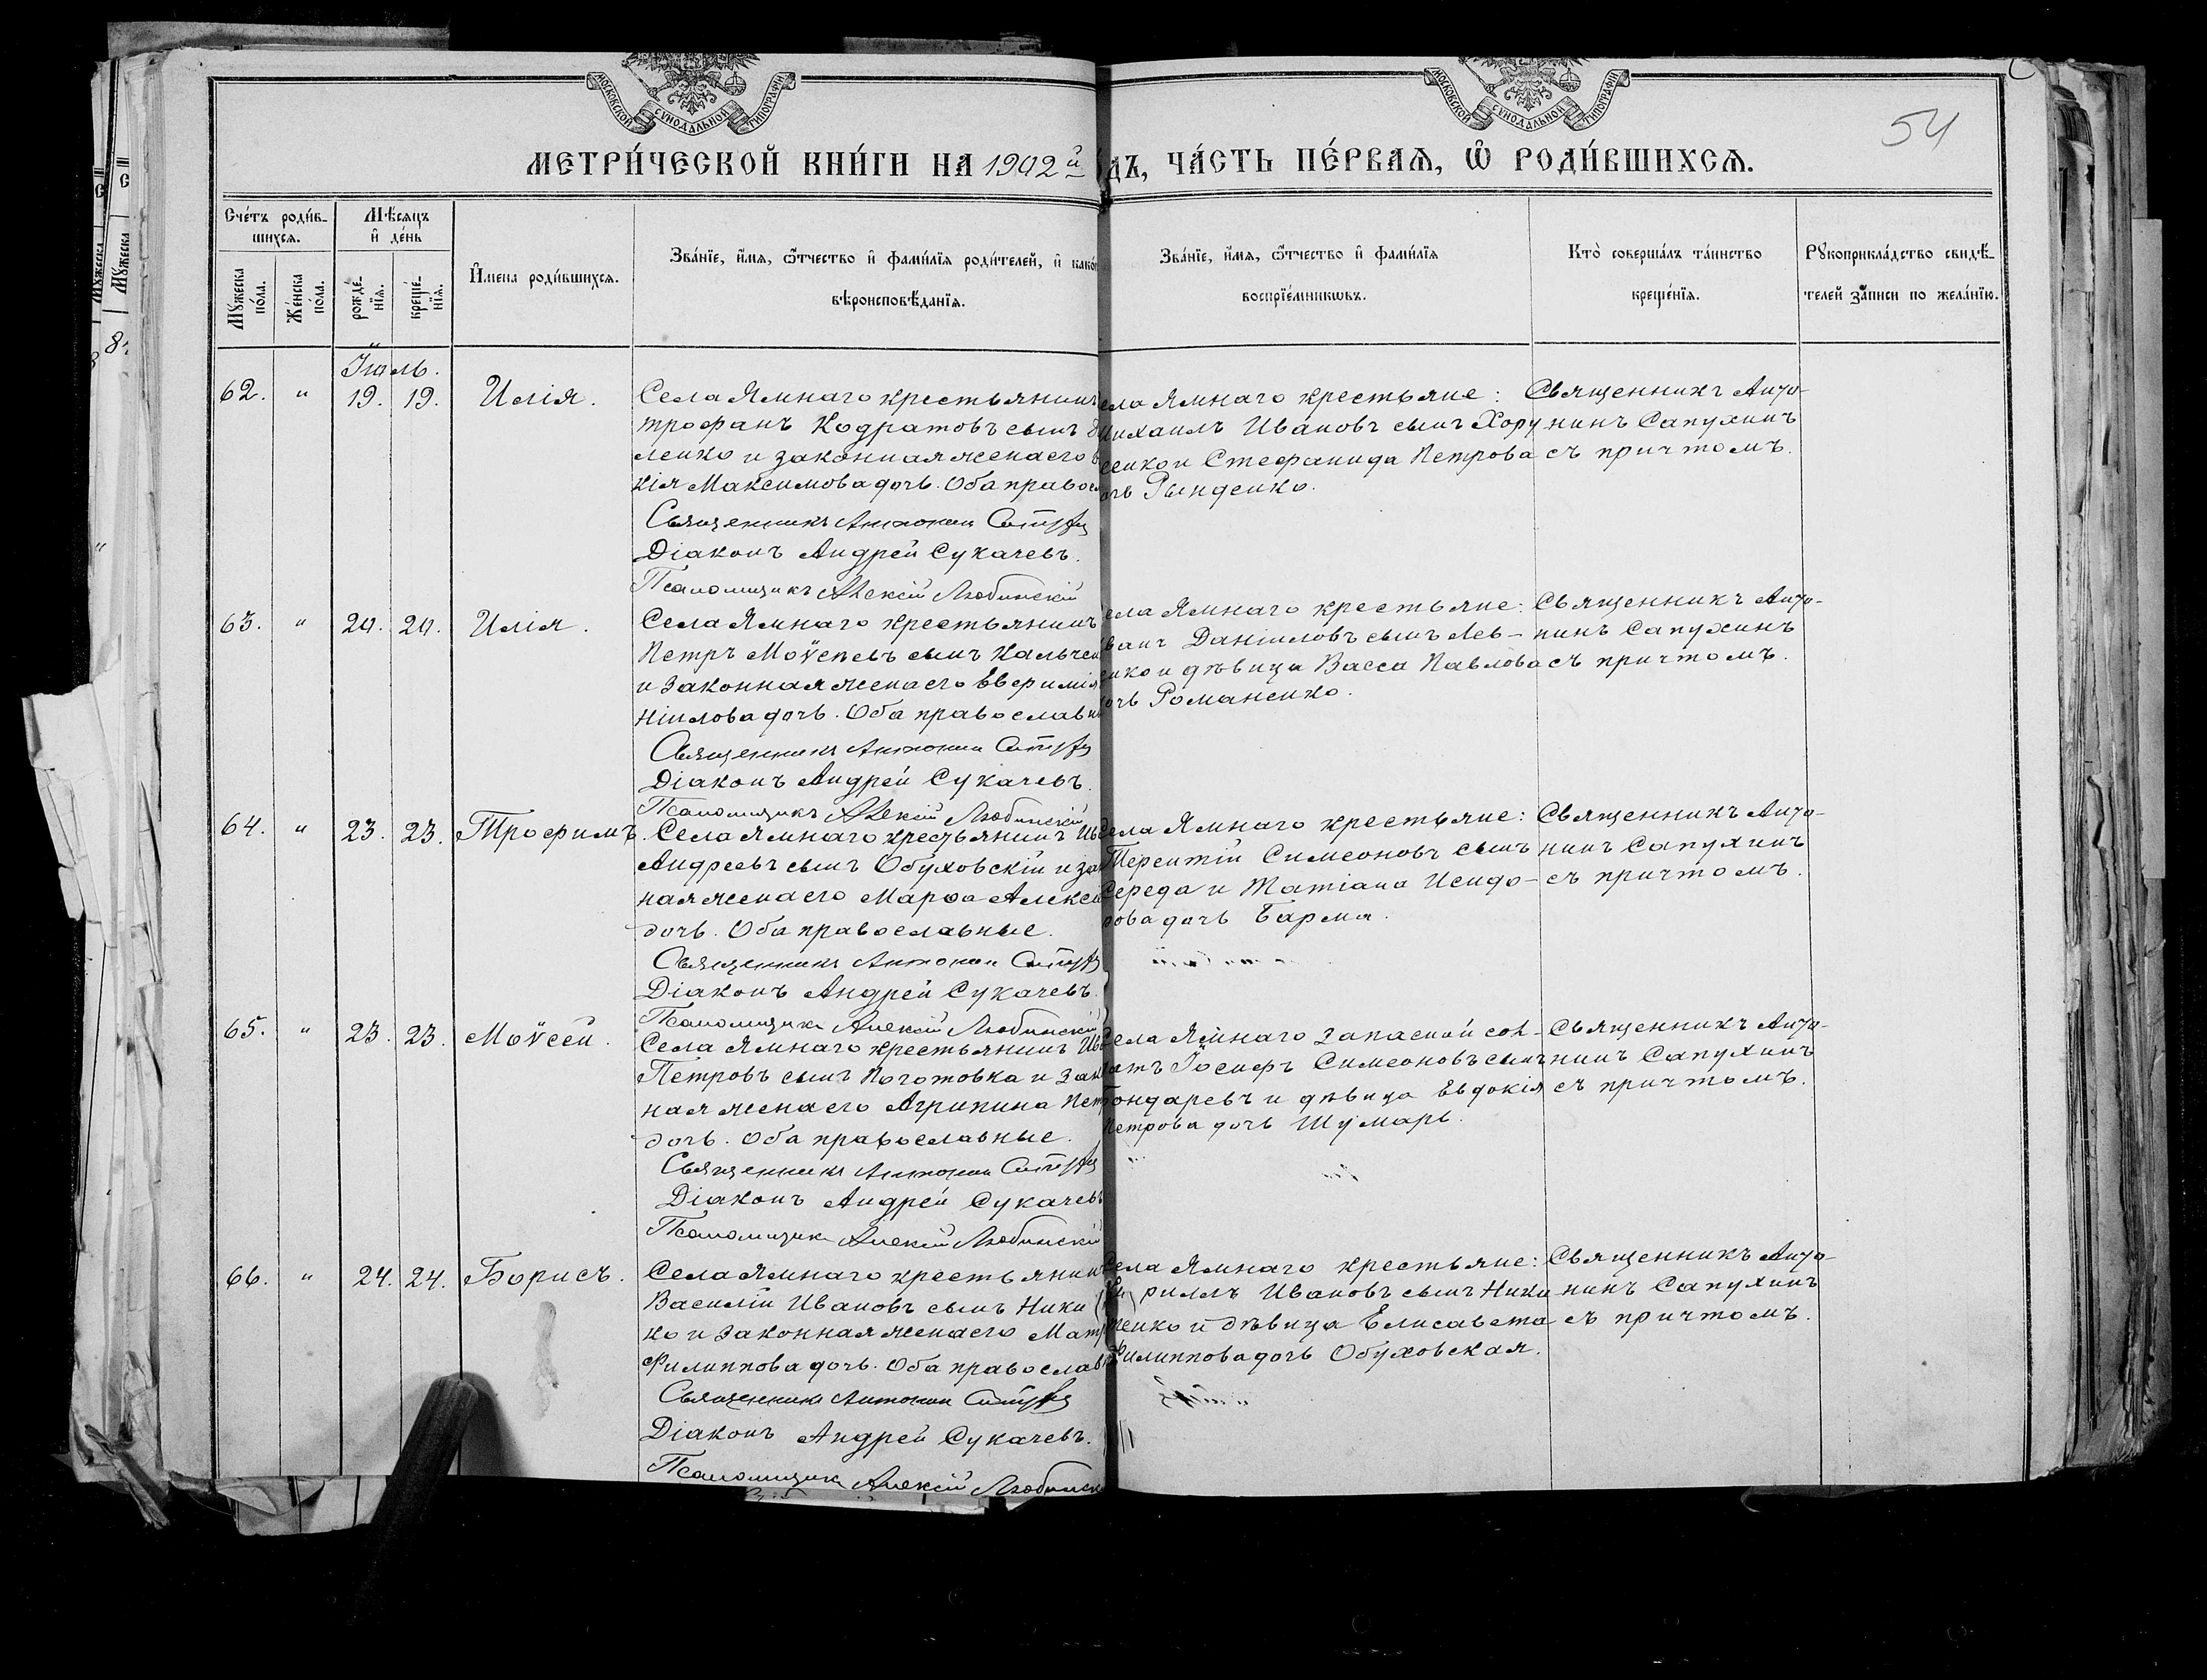 МОСКОВСКОЙ СѴНОДАЛЬНОЙ ТИПОГРАФІИ
МОСКОВСКОЙ СѴНОДАЛЬНОЙ ТИПОГРАФІИ
54
МЕТРИ́ЧЕСКОЙ КНИ́ГИ НА 1902й
ДЪ, ЧА́СТЬ ПЕ́РВАѦ, Ѡ҆ РОДИ́ВШИХСѦ.
Сче́тъ роди́в-
шихсѧ.
Мѣ́сѧцъ
и҆ де́нь
Мꙋ́жеска по́ла.
Же́нска по́ла.
рожде́-
нїѧ.
креще́-
нїѧ.
И҆мена роди́вшихсѧ.
Зва́нїе, и҆́мѧ, ѻ҆́тчество и҆ фами́лїѧ роди́телей, и҆ како́
вѣроисповѣ́данїѧ.
Зва́нїе, и҆́мѧ, ѻ҆́тчество и҆ фами́лїѧ
воспрїе́мникѡвъ.
Кто̀ соверша́лъ та́инство
креще́нїѧ.
Рꙋкоприкла́дство свидѣ́-
телей за́писи по жела́нїю.
Іюль.
62. " 19. 19. Илія.
Села Ямнаго крестьянинъ
трофанъ Кодратовъ сынъ
ленко и законная жена его
кія Максимова дочь. Оба правос
Священникъ Антонин
Діаконъ Андрей Сукачевъ.
Псаломщикъ Алексій Любинскій
ела Ямнаго крестьяне:
Михаилъ Ивановъ сынъ Хору
сенко и Стефанида Петрова
очь Рынденко.
Священникъ Анто-
нинъ Сапухинъ
съ причтомъ.
63. " 20. 20. Илія.
Села Ямнаго крестьянинъ
Петръ Моѵсеевъ сынъ Кальчен
и законная жена его Евфимія
ніилова дочь. Оба православн
Священникъ Антонин
Діаконъ Андрей Сукачевъ.
Псаломщикъ Алексій Любинскій
ела Ямнаго крестьяне:
ванъ Даніиловъ сынъ Лев-
енко и дѣвица Васса Павлова
очь Романенко.
Священникъ Анто-
нинъ Сапухинъ
съ причтомъ.
64. " 23. 23. Трофимъ.
Села Ямнаго крестьянинъ Ив
Андреевъ сынъ Обуховскій и зак
ная жена его Марѳа Алексі
дочь. Оба православные.
Священникъ Антонин
Діаконъ Андрей Сукачевъ.
Псаломщикъ Алексій Любинскій
Села Ямнаго крестьяне:
Терентій Симеоновъ сынъ
Середа и Татіана Исидо-
рова дочь Бармя.
Священникъ Анто-
нинъ Сапухинъ
съ причтомъ.
65. " 23. 23. Моѵсей.
Села Ямнаго крестьянинъ Ив
Петровъ сынъ Логотовка и зак
ная жена его Агрипина Пет
дочь. Оба православные.
Священникъ Антонин
Діаконъ Андрей Сукачевъ
Псаломщикъ Алексій Любинскій
Села Ямнаго запасной сол-
датъ Іосифъ Симеоновъ сынъ
Гондаревъ и дѣвица Евдокія
Петрова дочь Шумарь.
Священникъ Анто-
нинъ Сапухинъ
съ причтомъ.
66. " 24. 24. Борисъ.
Села Ямнаго крестьянин
Василій Ивановъ сынъ Ники
ко и законная жена его Матр
Филиппова дочь. Оба православ
Священникъ Антонин
Діаконъ Андрей Сукачевъ.
Псаломщикъ Алексій Любинск
Села Ямнаго крестьяне:
Кириллъ Ивановъ сынъ Ники
тенко и дѣвица Елисавета
Филиппова дочь Обуховская.
Священникъ Анто-
нинъ Сапухинъ
съ причтомъ.